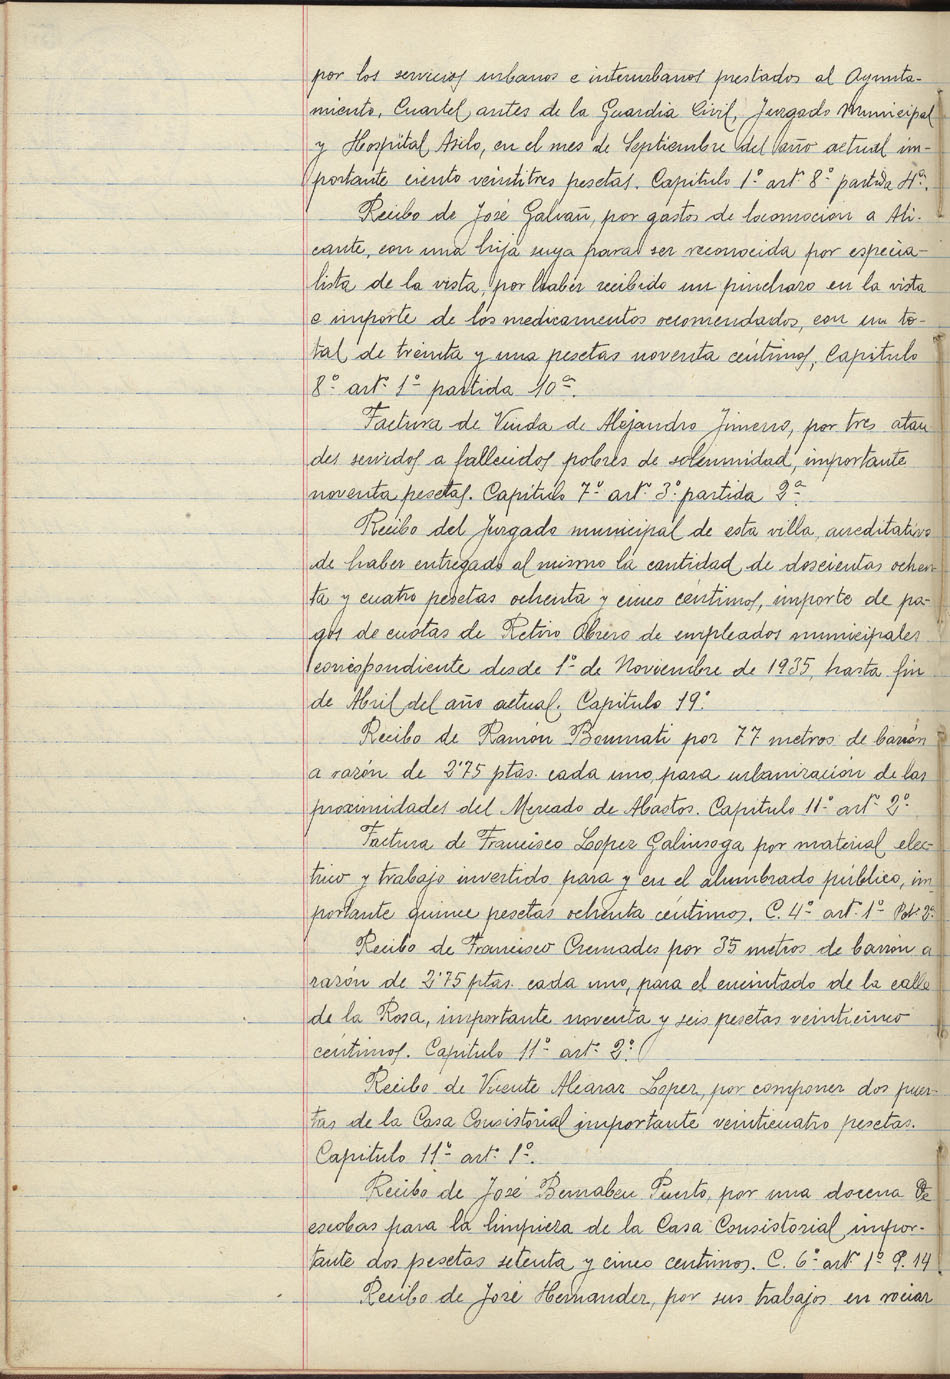 por los servicios urbanos e interurbanos prestados al Ayunta-
miento, Cuartel antes de la Guardia Civil, Juzgado Municipal
y Hospital Asilo, en el mes de Septiembre del año actual im-
portante ciento veintitres pesetas. Capitulo 1º artº 8º partida 4ª.
Recibo de José Galvañ, por gastos de locomocion a Ali-
cante, con una hija suya para ser reconocida por especia-
lista de la vista, por haber recibido un pinchazo en la vista
e importe de los medicamentos recomendados, con un to-
tal de treinta y una pesetas noventa centimos, Capitulo
8º artº 1º partida 10ª.
Factura de Viuda de Alejandro Jimeno, por tres atau
des servidos a fallecidos pobres de solemnidad, importante
noventa pesetas. Capitulo 7º artº 3º partida 2ª
Recibo del Juzgado municipal de esta villa, acreditativo
de haber entregado al mismo la cantidad de doscientas ochen-
ta y cuatro pesetas ochenta y cinco céntimos, importe de pa-
gos de cuotas de Retiro Obrero de empleados municipales
correspondiente desde 1º de Noviembre de 1935, hasta fin
de Abril del año actual. Capitulo 19º
Recibo de Ramón Boumati por 77 metros de barrón
a razón de 2'75 ptas. cada uno, para urbanización de las
proximidades del Mercado de Abastos. Capitulo 11º artº 2º.
Factura de Francisco Lopez Galinsoga por material elec-
trico y trabajo invertido para y en el alumbrado público, im
portante quince pesetas ochenta céntimos. C. 4º artº 1º Pdª 2ª
Recibo de Francisco Cremades por 35 metros de barrón a
razón de 2'75 ptas. cada uno, para el encintado de la calle
de la Rosa, importante noventa y seis pesetas veinticinco
centimos. Capitulo 11º artº 2º.
Recibo de Vicente Alcaraz Lopez, por componer dos puer-
tas de la Casa Consistorial importante veinticuatro pesetas.
Capitulo 11º artº 1º.
Recibo de José Bernabeu Puerto, por una docena de
escobas para la limpieza de la Casa Consistorial impor-
tante dos pesetas setenta y cinco centimos. C. 6º artº 1º P. 14
Recibo de José Hernandez, por sus trabajos en rociar